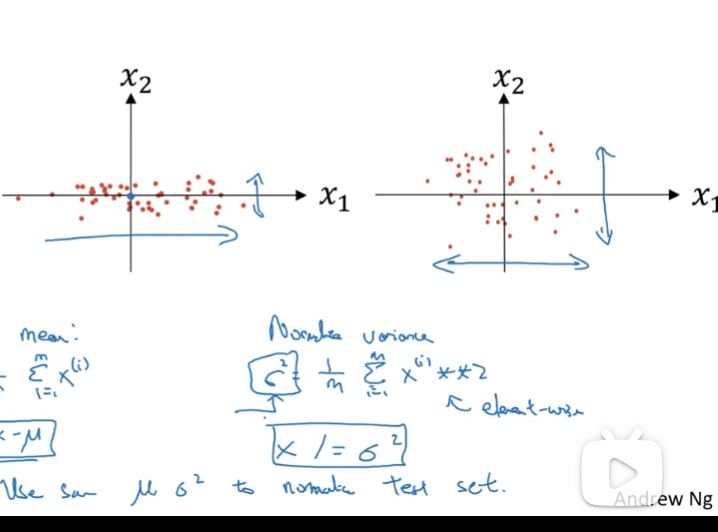 x₂ x₂
x₁ x₁
mean: Normalize variance
∑ᵢ₌₁ᵐ x⁽ⁱ⁾ σ² = 1/m ∑ᵢ₌₁ᵐ x⁽ⁱ⁾ **2
element-wise
x - μ x /= σ²
Use same μ σ² to normalize test set.
Andrew Ng